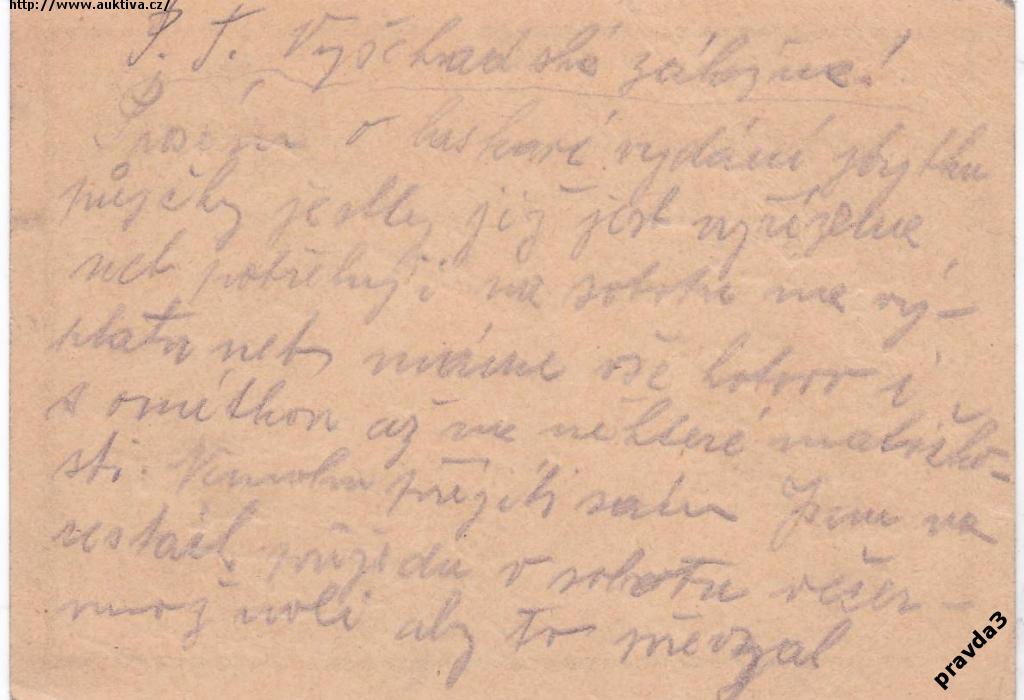 http://www.auktiva.cz/
P. T. Vyšehradské záložně!
Prosím o laskavé vydání zbytku
půjčky jestly již jest vyřízena
neb potřebuji na sobotu na vý-
platu neb máme vše hotovo i
s omítkou až na některé maličko-
sti. Nemohu přijíti sám Jsem na
cestách přijedu v sobotu večer
aby to
pravda3